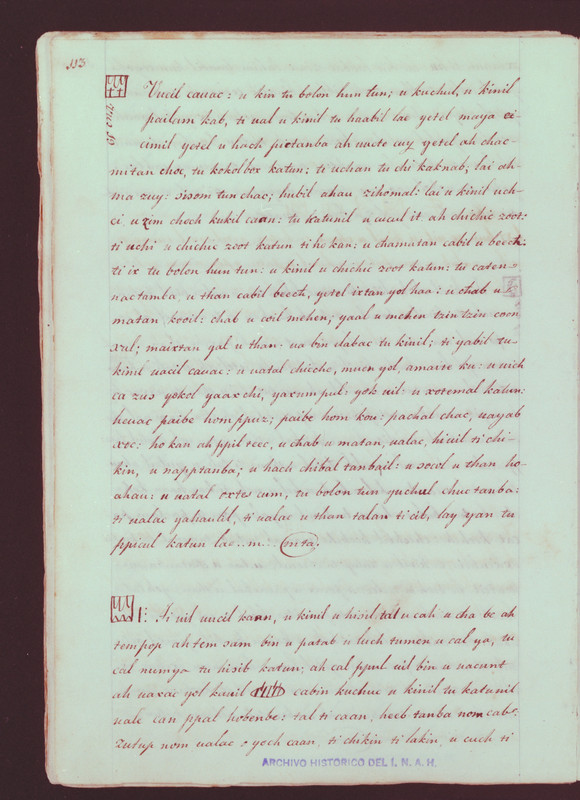 113
Vucil cauac: u kin tu bolon hun tun; u kuchul, u kinil
pailum kab, ti ual u kinil tu haabil lae yetel maya ci
cimil yetel u hach pectanba ah uucte cuy yetel ah chac-
mitan choc, tu kokolbox katun; ti uchan tu chi kaknab; lai ah-
ma zuy: sisom tun chac; hubil ahau zihomal: lai u kinil uch-
ci u zim chech kukil caan: tu katunil u cucul it ah chichic zoot:
ti uchi u chichic zoot katun ti ho kan: u chamatan cabil u beech:
ti ix tu bolon hun tun: u kinil u chichic zoot katun: tu caten
nactamba, u than cabil beech, yetel ixtan yol haa: u chab u
matan kooil: chab u uil mehen; yaal u mehen tzin tzin coon
xul; maixtan yal u than: ua bin dabac tu kinil; ti yabil tu-
kinil uacil cauac: u uatal chicche, mucn yol, amayte ku: u uich
ca zus yokol yaaxchi, yaxum pul: yok uil: u xotemal katun:
heuac paibe homppuz; paibe hom kou: pachal chac, uayab
xoc: ho kan ah ppil tec, u chab u matan, ualac, hiuil ti chi-
kin, u napptanba; u hach chibal tanbail: u socol u than ho-
ahau: u uatal oxtescum, tu bolon tun yuchul chuctanba:
ti ualac yahaulil, ti ualac u than talan ti cit, lay yan tu
ppicul katun lae. m... mta.
1: Ti uil uucil kaan, u kinil u hisil tal u cah u cha be ah
tem pop ah tem sam bin u patab u luch tumen u cal ya, tu
cal numya tu hisib katun; ah cal ppul uil bin u uacunt
ah uaxac yol kauil cabin kuchuc u kinil tu katunil
uale can ppal hobenbe: tal ti caan, heeb tanba nom cabe:
zutup nom ualac s yoch caan, ti chikin ti lakin, u cuch ti
ARCHIVO HISTORICO DEL I. N. A. H.